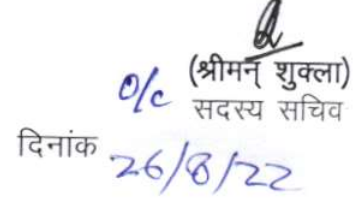 (श्रीमन् शुक्ला)
O/c सदस्य सचिव
दिनांक 26/8/22